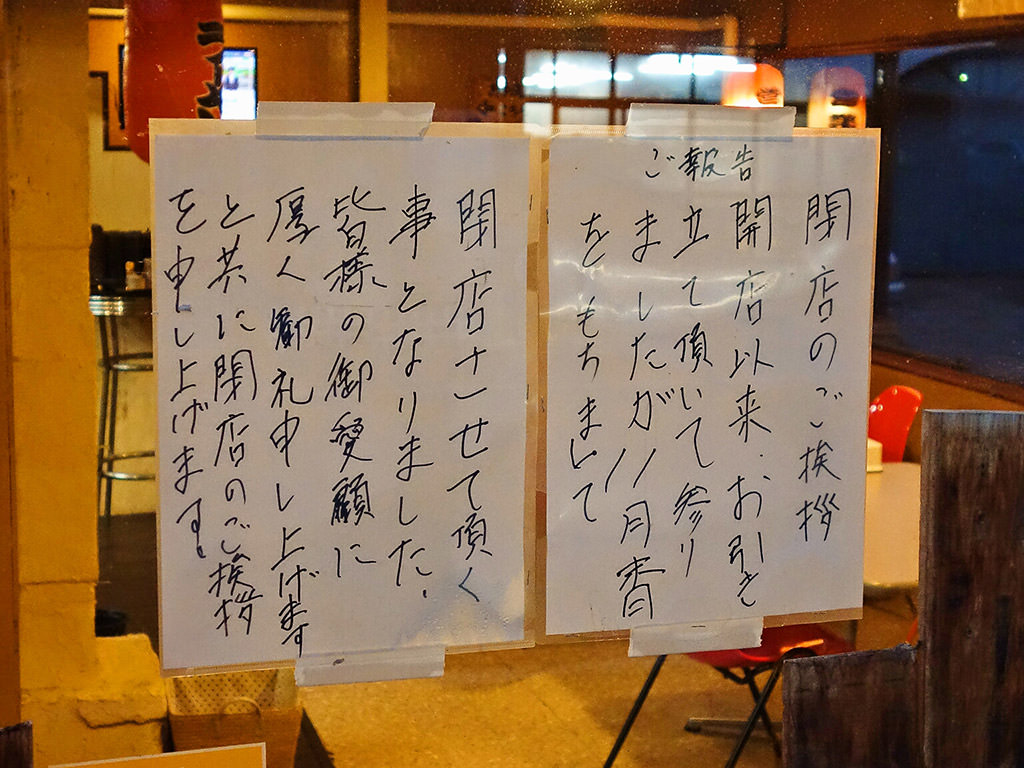 ご報告
閉店のご挨拶
開店以来、お引き
立て頂いて参り
ましたが11月
をもちまして
閉店させて頂く
事となりました。
皆様の御愛顧に
厚く御礼申し上げます
と共に閉店のご挨拶
を申し上げます。